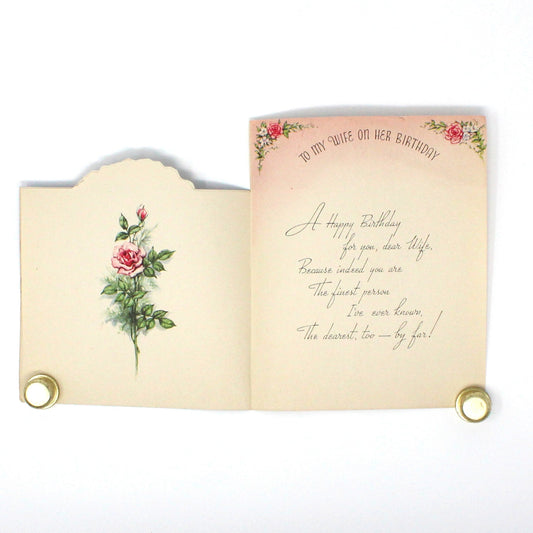 TO MY WIFE ON HER BIRTHDAY
A Happy Birthday
for you, dear Wife,
Because indeed you are
The finest person
I've ever known,
The dearest, too — by far!